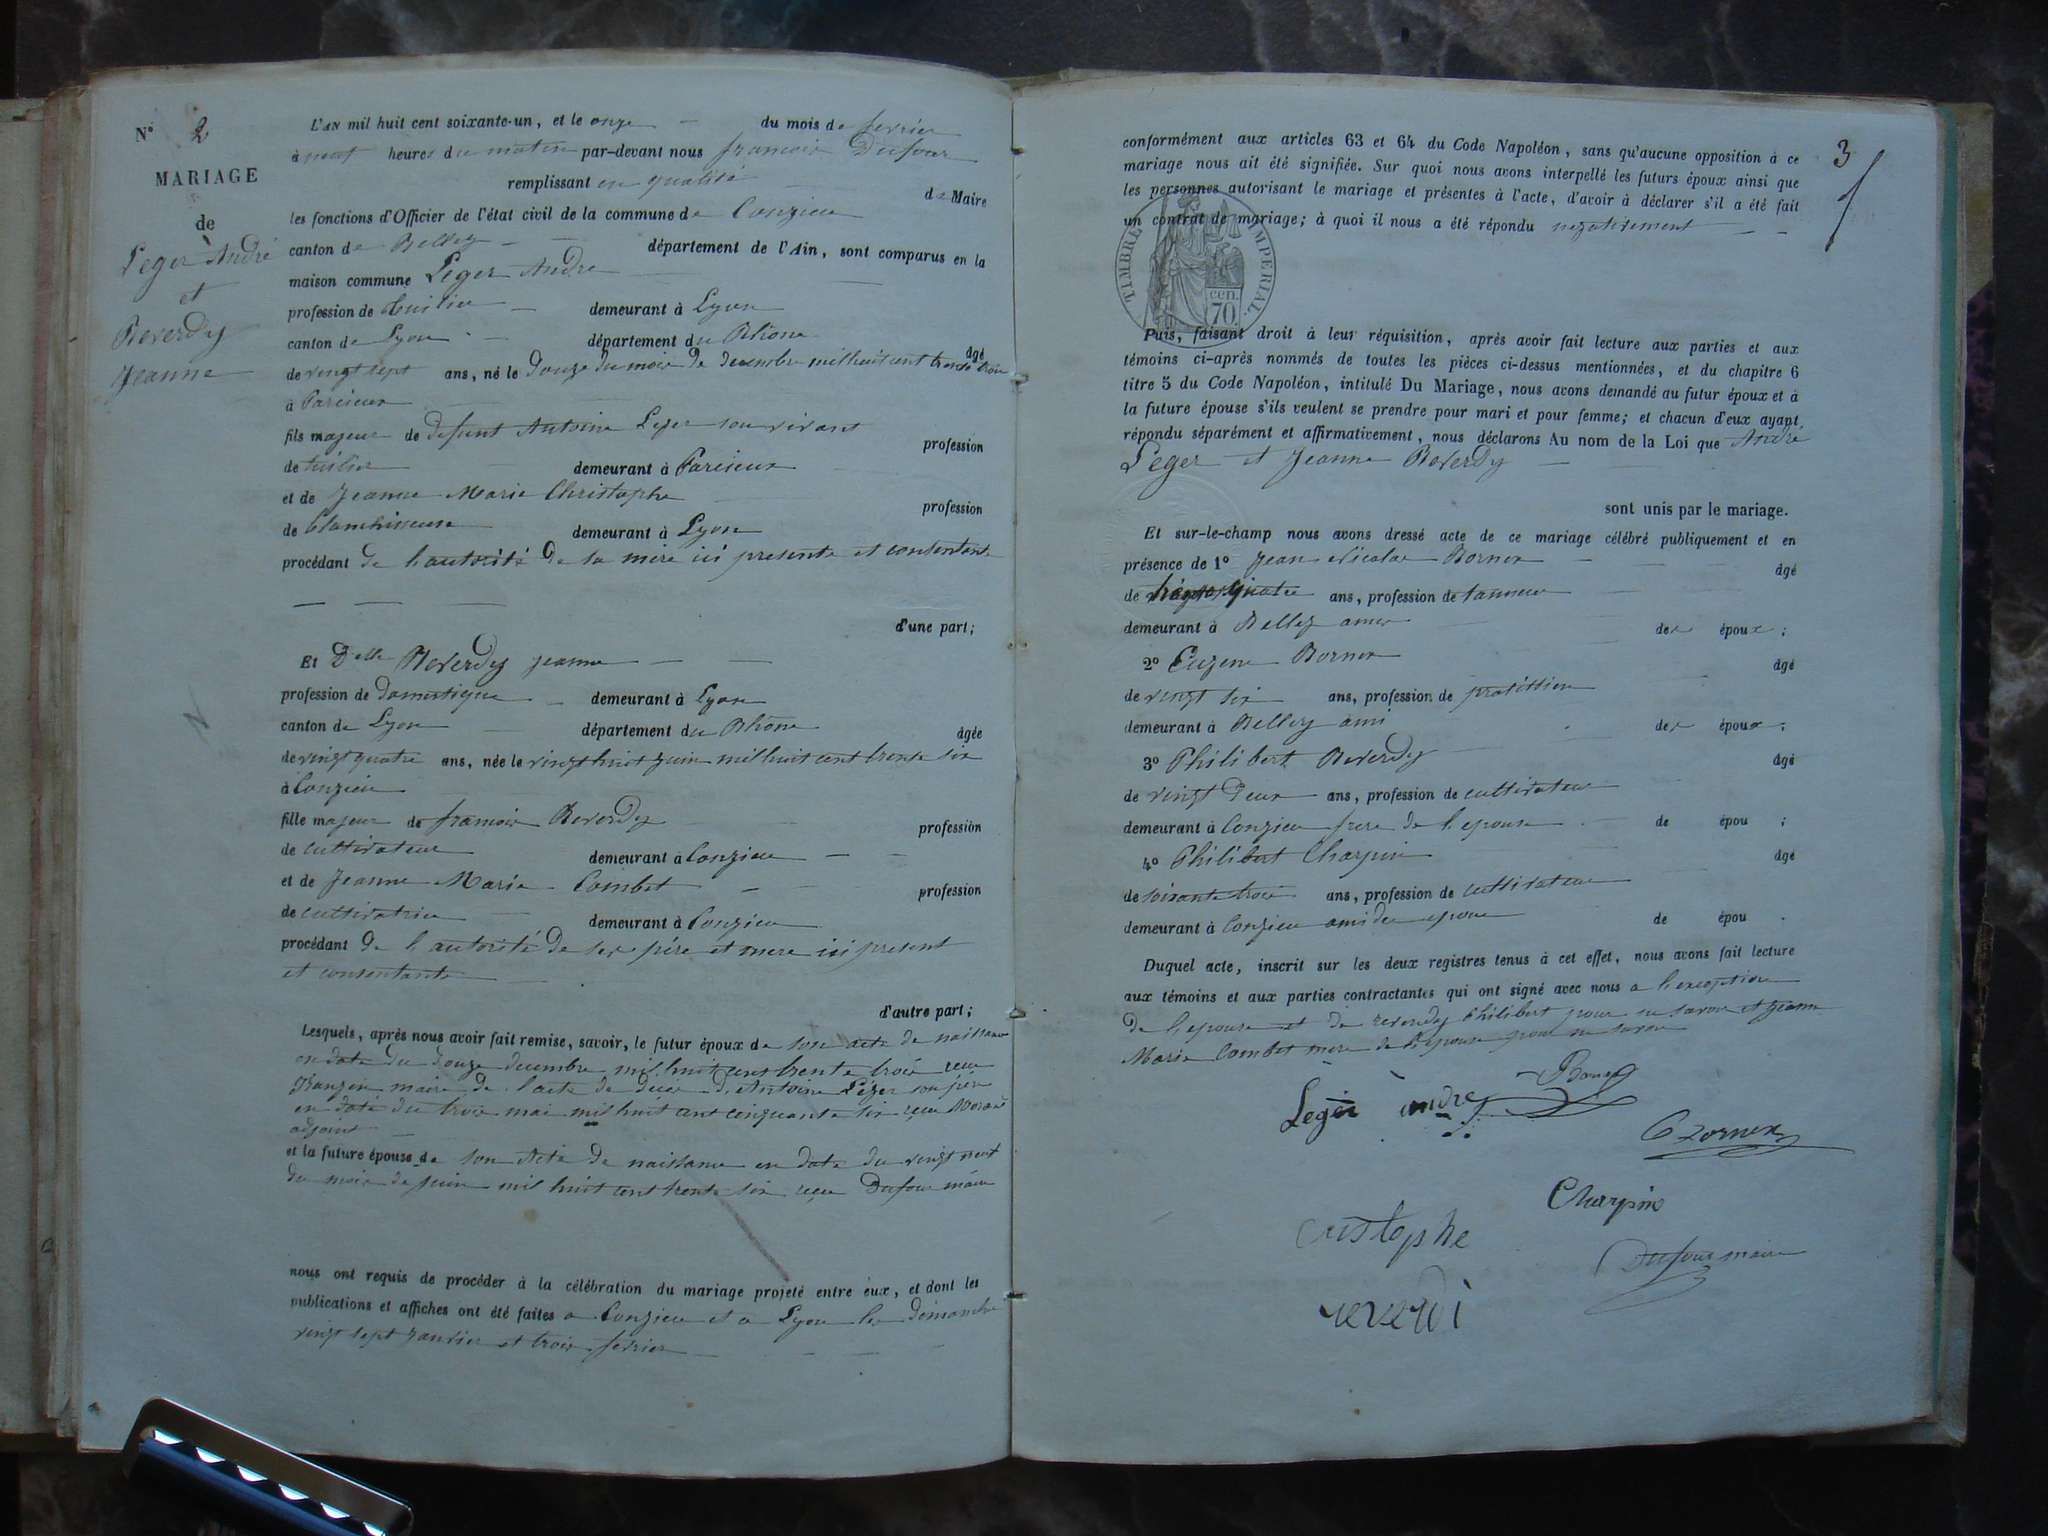 N° 2
MARIAGE
de
Leger André
et
Reverdy
Jeanne
L'AN mil huit cent soixante-un, et le onze du mois de fevrier
à neuf heures du matin par-devant nous francois Dufour
remplissant en qualité de Maire
les fonctions d'Officier de l'état civil de la commune de Conzieu
canton de Belley département de l'Ain, sont comparus en la
maison commune Leger André
profession de tuilier demeurant à Lyon
canton de Lyon département du Rhône âgé
de vingt sept ans, né le douze du mois de decembre mil huit cent trente trois
à Parcieux
fils majeur de defunt Antoine Leger son vivant profession
de tuilier demeurant à Parcieux
et de Jeanne Marie Christophe profession
de blanchisseuse demeurant à Lyon
procédant de l'autorité de sa mère ici presente et consentante
d'une part;
Et Delle Reverdy jeanne
profession de domestique demeurant à Lyon
canton de Lyon département du Rhône âgée
de vingt quatre ans, née le vingt huit juin mil huit cent trente six
à Conzieu
fille majeure de francois Reverdy profession
de cultivateur demeurant à Conzieu
et de Jeanne Marie Combet profession
de cultivatrice demeurant à Conzieu
procédant de l'autorité de ses père et mere ici present
et consentante
d'autre part;
Lesquels, après nous avoir fait remise, savoir, le futur époux de son acte de naissance
en date du douze decembre mil huit cent trente trois recu
maire de l'acte de décès d'Antoine Léger son père
en date du trois mai mil huit cent cinquante six reçu
adjoint
et la future épouse de son Acte de naissance en date du vingt neuf
du mois de juin mil huit cent trente six reçu Dufour maire
nous ont requis de procéder à la célébration du mariage projeté entre eux, et dont les
publications et affiches ont été faites a Conzieu et a Lyon les démanche
vingt sept janvier et trois fevrier
3
conformément aux articles 63 et 64 du Code Napoléon, sans qu'aucune opposition à ce
mariage nous ait été signifiée. Sur quoi nous avons interpellé les futurs époux ainsi que
les personnes autorisant le mariage et présentes à l'acte, d'avoir à déclarer s'il a été fait
un contrat de mariage; à quoi il nous a été répondu negativement
TIMBRE IMPERIAL.
cen.
70.
Puis, faisant droit à leur réquisition, après avoir fait lecture aux parties et aux
témoins ci-après nommés de toutes les pièces ci-dessus mentionnées, et du chapitre 6
titre 5 du Code Napoléon, intitulé Du Mariage, nous avons demandé au futur époux et à
la future épouse s'ils veulent se prendre pour mari et pour femme; et chacun d'eux ayant
répondu séparément et affirmativement, nous déclarons Au nom de la Loi que André
Leger et Jeanne Reverdy
sont unis par le mariage.
Et sur-le-champ nous avons dressé acte de ce mariage célébré publiquement et en
présence de 1° Jean Nicolas Bornex âgé
de quatre ans, profession de tanneur
demeurant à Belley amis des époux;
2° Eugene Bornex âgé
de vingt six ans, profession de
demeurant à Belley ami des époux;
3° Philibert Reverdy âgé
de vingt deux ans, profession de cultivateur
demeurant à Conzieu frere de l'epouse de épou ;
4° Philibert Charpin âgé
de soixante trois ans, profession de cultivateur
demeurant à Conzieu ami de epoux de épou .
Duquel acte, inscrit sur les deux registres tenus à cet effet, nous avons fait lecture
aux témoins et aux parties contractantes qui ont signé avec nous a l'exception
de l'epouse et de reverdy Philibert pour ne savoir et jeanne
Marie Combet mere de l'epouse pour ne savoir
Leger andre
Charpin
cristophe
Dufour maire
reverdi